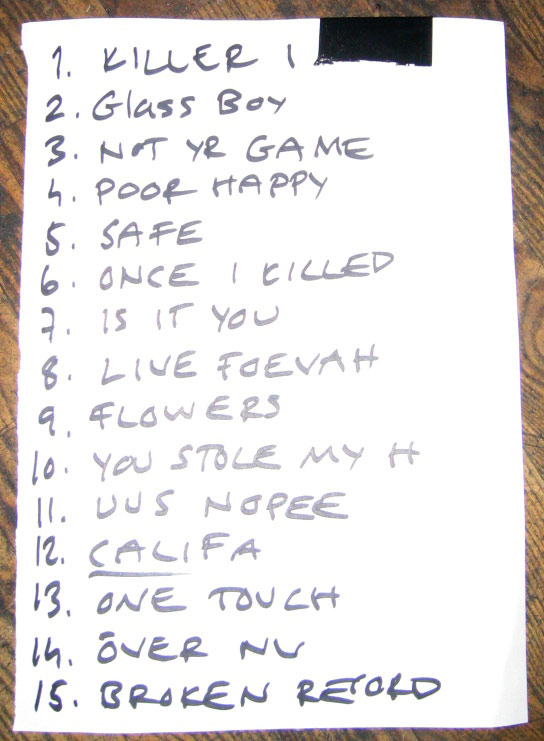 1. KILLER I
2. Glass Boy
3. NOT YR GAME
4. POOR HAPPY
5. SAFE
6. ONCE I KILLED
7. IS IT YOU
8. LIVE FOEVAH
9. FLOWERS
10. YOU STOLE MY H
11. UUS NOPEE
12. CALIFA
13. ONE TOUCH
14. ÖVER NU
15. BROKEN RECORD